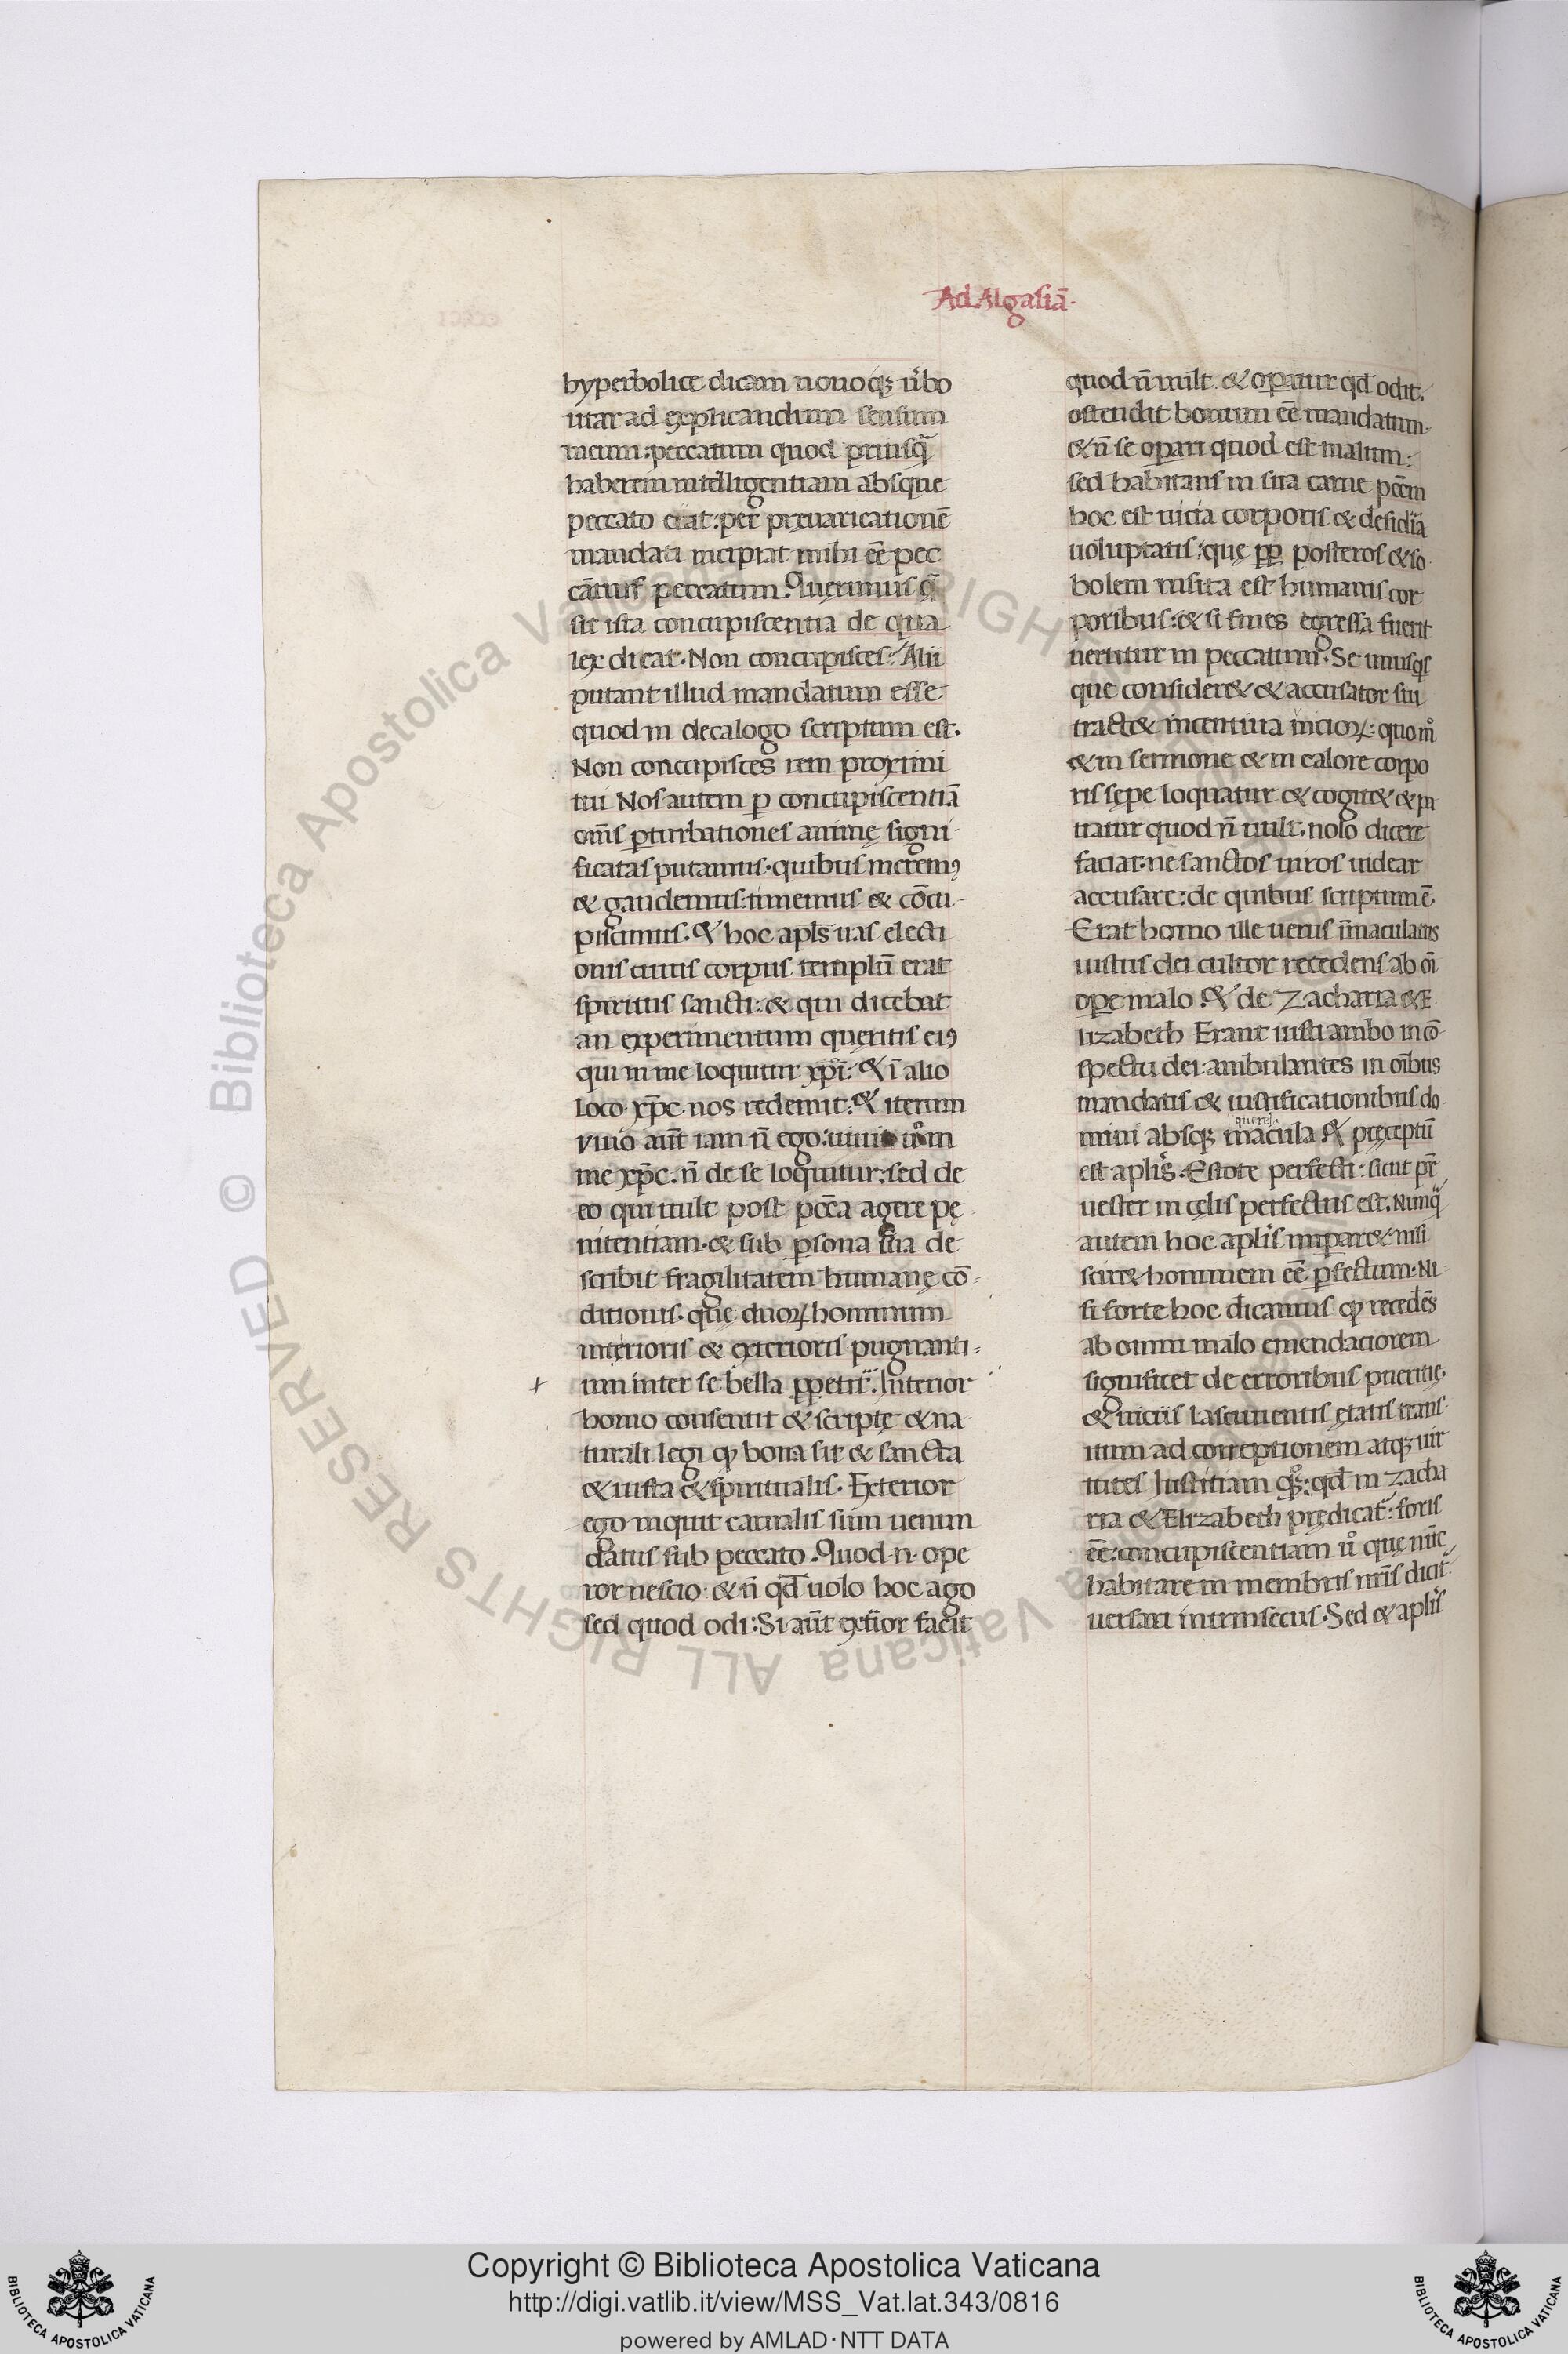 Ad Algasiā·
hyperbolice dicam nouoq; ūbo
utar ad explicandum sensum
meum: peccatum quod priusq̄
haberem intelligentiam absque
peccato erat: per pręuaricationē
mandati incipiat mihi eē pec
cātius peccatum. Quęrimus q̄
sit ista concupiscentia de qua
lex dicat. Non concupisces: Alii
putant illud mandatum esse
quod in decalogo scriptum est.
Non concupisces rem proximi
tui Nos autem ꝑ concupiscentiā
om̄s ꝑturbationes animę signi
ficatas putamus. quibus merem᾽
& gaudemus: timemus & cōcu
piscimus. & hoc apl̄s uas electi
onis cuius corpus templū erat
spiritus sancti: & qui dicebat
an experimentum queritis ei᾽
qui in me loquitur xp̄i: & ī alio
loco xp̄c nos redemit: & iterum
viuo aūt iam n̄ ego: uiuit ů in
me xp̄c. n̄ de se loquitur: sed de
eo qui uult post pc̄ca agere pę
nitentiam. & sub ꝑsona sua de
scribit fragilitatem humanę cō
ditionis. quę duoꝝ hominum
interioris & exterioris pugnanti
um inter se bella ꝑpetit᷑. Interior
homo consentit & scriptę & na
turali legi ꝙ bona sit & sancta
& iusta & spiritualis. Exterior
ego inquit carnalis sum uenun
datus sub peccato. Quod n̄ ope
ror nescio. & n̄ qd̄ uolo hoc ago
sed quod odi: Si aūt exťior facit
quod n̄ uult. & oꝑatur qd̄ odit.
ostendit bonum eē mandatum
& n̄ se oꝑari quod est malum:
sed habitans in sua carne pc̄cm
hoc est uicia corporis & desidia
uoluptatis: quę pp̄ posteros & so
bolem insita est humanis cor
poribus: & si fines egressa fuerit
uertitur in peccatum. Se unusqs
que consider& & accusator sui
tract& incentiua incioꝝ: quom̊
& in sermone & in calore corpo
ris sępe loquatur & cogit& & pa
tiatur quod n̄ uult. nolo dicere
faciat. ne sanctos uiros uidear
accusare: de quibus scriptum ē.
Erat homo ille uerus īmaculatus
iustus dei cultor recedens ab oī
oꝑe malo. & de Zacharia & E
lizabeth Erant iusti ambo in cō
spectu dei: ambulantes in oīb̄us
mandatis & iustificationibus do
querela
mini absq; macula & pręceptū
est aplīs. Estote perfecti: sicut pr̄
uester in cęlis perfectus est. Nunq̄
autem hoc aplīs imꝑar&: nisi
scir& hominem eē ꝑfectum. Ni
si forte hoc dicamus ꝙ recedēs
ab omni malo emendationem
significet de erroribus pueritię.
& uiciis lasciuientis ętatis trans
itum ad correptionem atq; uir
tutes Iustitiam qs̊: qd̄ in zacha
ria & Elizabeth prędicat᷑: foris
eē: concupiscentiam ů que nūc
habitare in membris nr̄is dicit᷑
uersari intrinsecus. Sed & aplīs
Copyright © Biblioteca Apostolica Vaticana
http://digi.vatlib.it/view/MSS_Vat.lat.343/0816
powered by AMLAD·NTT DATA
BIBLIOTECA APOSTOLICA VATICANA
BIBLIOTECA APOSTOLICA VATICANA
© Biblioteca Apostolica Vaticana ALL RIGHTS RESERVED